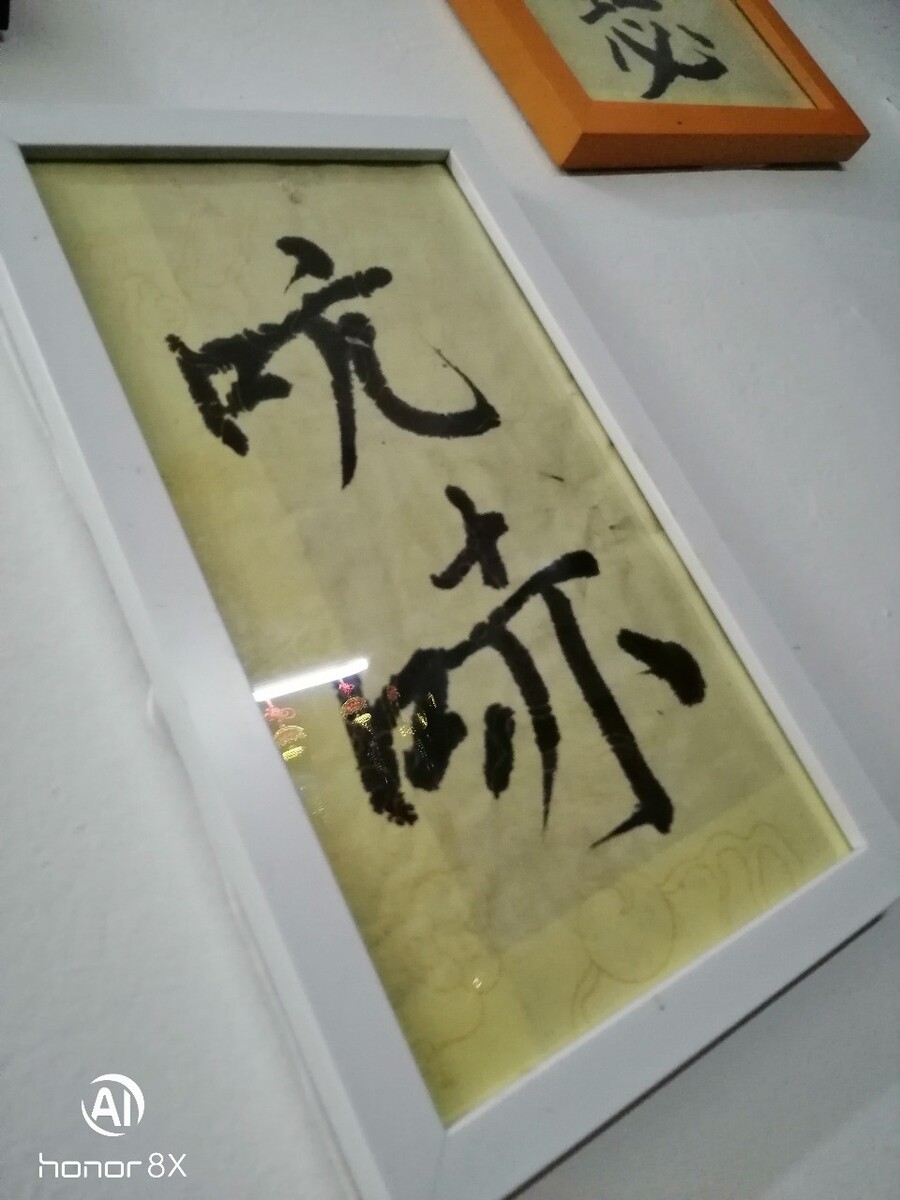 吭
哧
AI
honor 8X